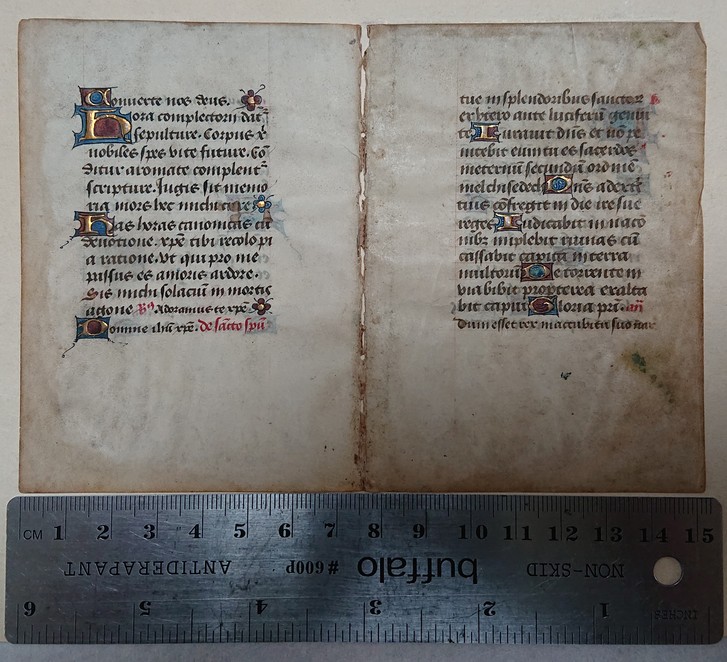 Conuerte nos deus.
Hora completorii dat̄
sepulture. Corpus x̄
nobiles spes vite future. Cō
ditur aromate complent̄
scripture. Jugis sit memo
ria mors hec michi cure
Has horas canonicas cū
deuotione. xp̄e tibi recolo pi
a ratione. Vt qui pro me
passus es amoris ardore.
Sis michi solacium in mortis
agone Adoramus te xp̄e
Domine ihū xp̄e. de sancto spū
tue in splendoribus sanctoꝝ
ex vtero ante luciferū genui
te Iurauit dn̄s et nō pe
nitebit eum tu es sacerdos
in eternum secundū ordinē
melchisedech Dn̄s a dextris
tuis cōfregit in die ire sue
reges Iudicabit in nacō
nibꝫ implebit ruinas cū
cassabit capita in terra
multorū De torrente in
via bibit propterea exalta
bit caput Gloria pri. an̄
Dum esset rex in accubitu suo nar
CM 1 2 3 4 5 6 7 8 9 10 11 12 13 14 15
ANTIDERAPANT #600P buffalo NON-SKID
6 5 4 3 2 1 INCHES